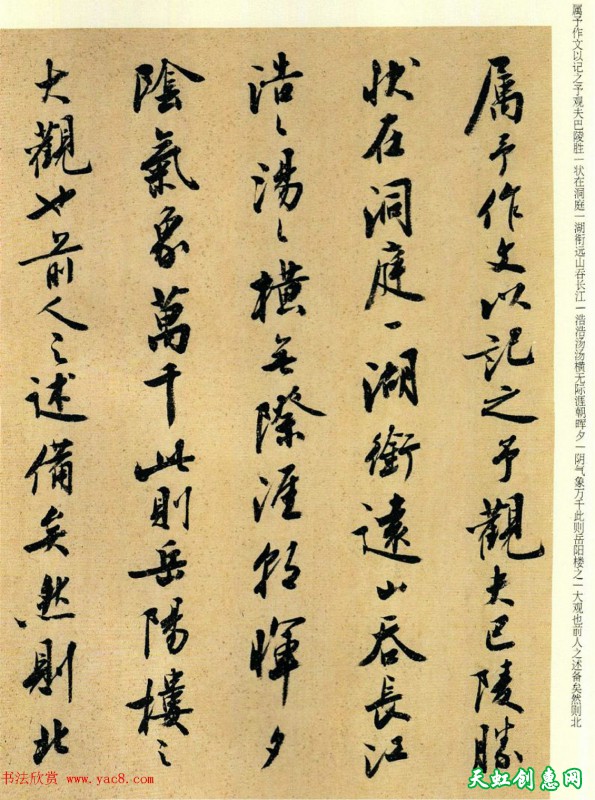 属予作文以记之予观夫巴陵胜一状在洞庭一湖衔远山吞长江一浩浩汤汤横无际涯朝晖夕一阴气象万千此则岳阳楼之一大观也前人之述备矣然则北
属予作文以记之予觀夫巴陵勝
状在洞庭一湖銜遠山吞長江
浩〻湯〻橫無際涯朝暉夕
陰氣象萬千此則岳陽樓之
大觀也前人之述備矣然則北
书法欣赏 www.yac8.com
天虹创惠网